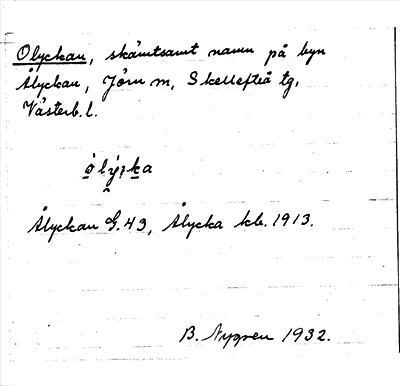 Olyckan, skämtsamt namn på byn
Ålyckan, Jörn m, Skellefteå tg,
Västerb. l.
Ålyckan G. 43, Ålycka kb. 1913.
B. Nygren 1932.